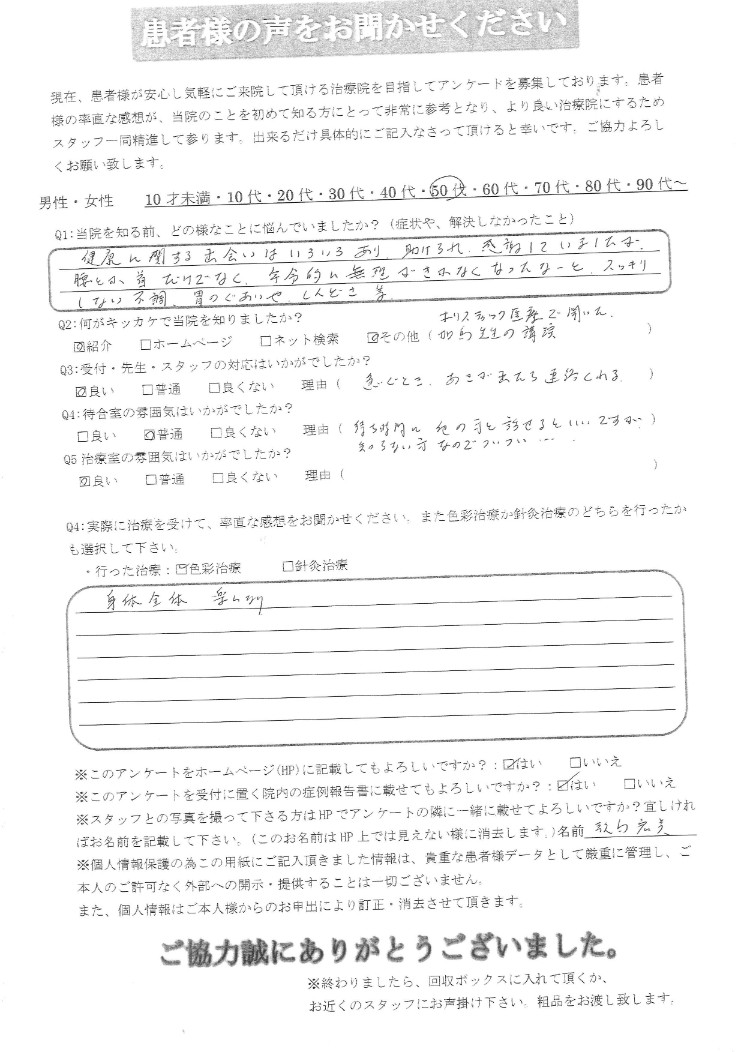 患者様の声をお聞かせください
現在、患者様が安心し気軽にご来院して頂ける治療院を目指してアンケートを募集しております。患者
様の率直な感想が、当院のことを初めて知る方にとって非常に参考となり、より良い治療院にするため
スタッフ一同精進して参ります。出来るだけ具体的にご記入なさって頂けると幸いです。ご協力よろし
くお願い致します。
男性・女性 10才未満・10代・20代・30代・40代・50代・60代・70代・80代・90代～
Q1:当院を知る前、どの様なことに悩んでいましたか?(症状や、解決しなかったこと)
健康に関する出会いはいろいろあり、助けられ、感謝していましたが、
腰とか、首だけでなく、年令的に無理がきかなくなったなーと、スッキリ
しない不調、胃のぐあいや、しんどさ等。
Q2:何がキッカケで当院を知りましたか? ホリスティック医療で聞いた。
☑紹介 □ホームページ □ネット検索 ☑その他(加島先生の講演 )
Q3:受付・先生・スタッフの対応はいかがでしたか?
☑良い □普通 □良くない 理由( 急ぐとき、あきが出たら連絡くれる )
Q4:待合室の雰囲気はいかがでしたか?
□良い ☑普通 □良くない 理由( 待ち時間に他の方と話せるといいですが、 )
知らない方なのでついつい……
Q5治療室の雰囲気はいかがでしたか?
☑良い □普通 □良くない 理由( )
Q4:実際に治療を受けて、率直な感想をお聞かせください。また色彩治療か針灸治療のどちらを行ったか
も選択して下さい。
・行った治療:☑色彩治療 □針灸治療
身体全体 楽になり
※このアンケートをホームページ(HP)に記載してもよろしいですか?:☑はい □いいえ
※このアンケートを受付に置く院内の症例報告書に載せてもよろしいですか?:☑はい □いいえ
※スタッフとの写真を撮って下さる方はHPでアンケートの隣に一緒に載せてよろしいですか?宜しけれ
ばお名前を記載して下さい。(このお名前はHP上では見えない様に消去します。)名前
※個人情報保護の為この用紙にご記入頂きました情報は、貴重な患者様データとして厳重に管理し、ご
本人のご許可なく外部への開示・提供することは一切ございません。
また、個人情報はご本人様からのお申出により訂正・消去させて頂きます。
ご協力誠にありがとうございました。
※終わりましたら、回収ボックスに入れて頂くか、
お近くのスタッフにお声掛け下さい。粗品をお渡し致します。